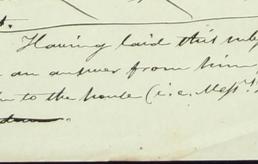 t.
Having laid this subj
an answer from him
to the house (i.e. Messrs.